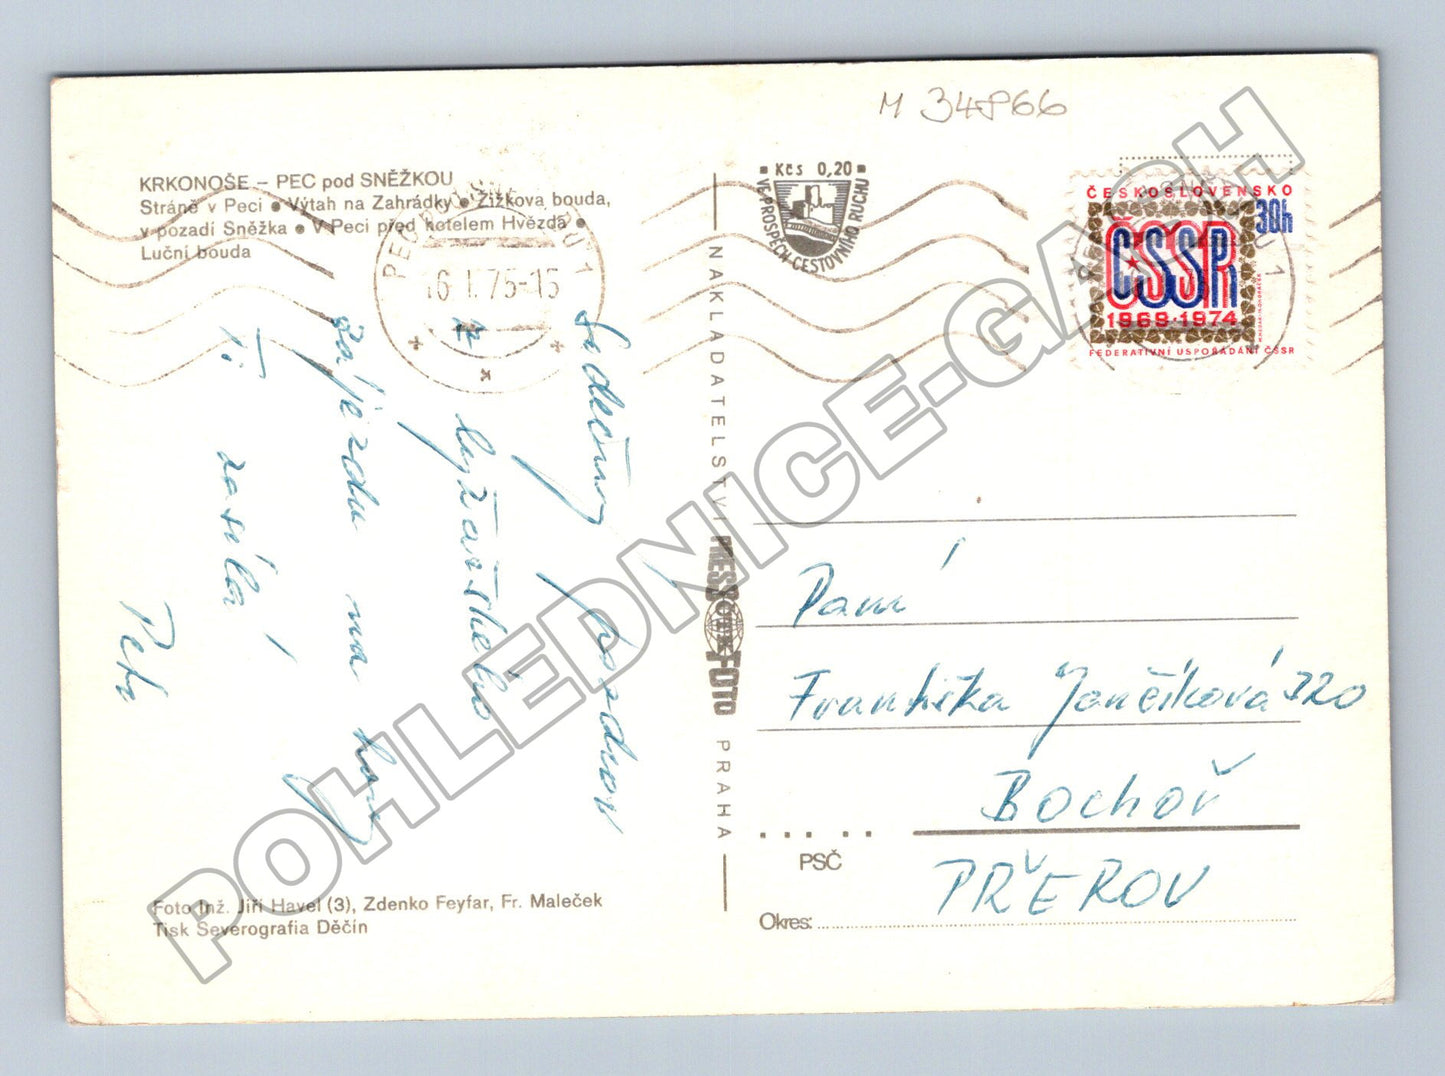 M 34866
KRKONOŠE – PEC pod SNĚŽKOU
Stráně v Peci ● Výtah na Zahrádky ● Žižkova bouda,
v pozadí Sněžka ● V Peci před hotelem Hvězda ●
Luční bouda
16.I.75-15
Kčs 0,20
VE PROSPĚCH CESTOVNÍHO RUCHU
ČESKOSLOVENSKO
30h
ČSSR
1969·1974
FEDERATIVNÍ USPOŘÁDÁNÍ ČSSR
Srdečný pozdrav
z lyžařského
zájezdu na hory
Ti zasílá
Petr
NAKLADATELSTVÍ PRESSFOTO PRAHA
ČTK
Paní
Františka Jančíková 320
Bochoř
PSČ
PŘEROV
Okres:
Foto Inž. Jiří Havel (3), Zdenko Feyfar, Fr. Maleček
Tisk Severografia Děčín
POHLEDNICE-GACH